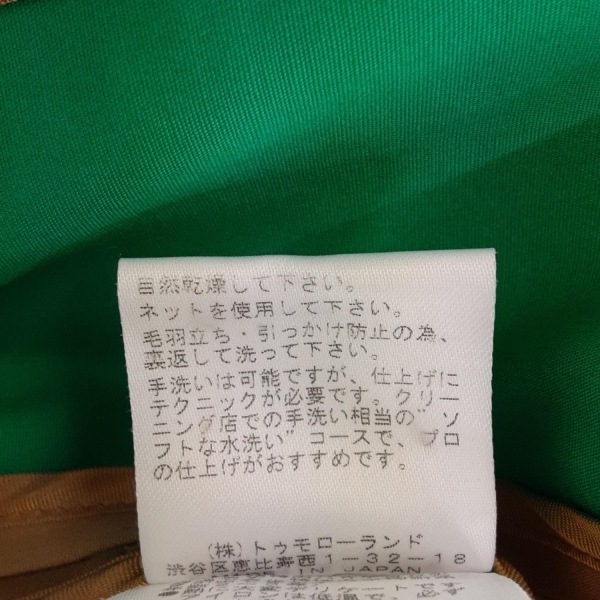 自然乾燥して下さい。
ネットを使用して下さい。
毛羽立ち・引っかけ防止の為、
裏返して洗って下さい。
手洗いは可能ですが、仕上げに
テクニックが必要です。クリー
ニング店での手洗い相当の”ソ
フトな水洗い”コースで、プロ
の仕上げがおすすめです。
(株)トゥモローランド
渋谷区恵比寿西1-32-18
IN JAPAN